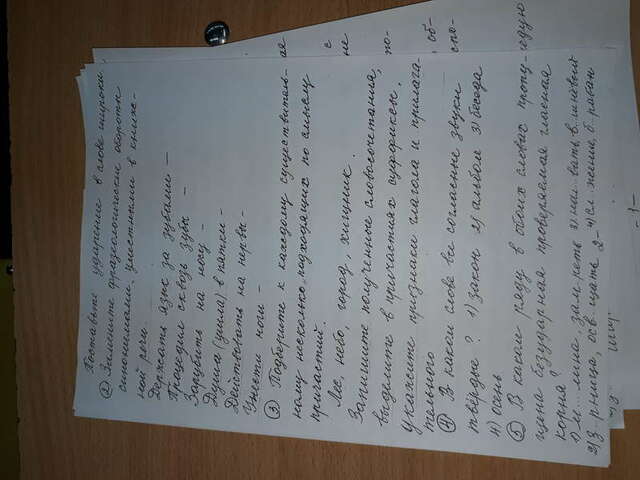 Поставьте ударение в слове широки.
② Замените фразеологические обороты
синонимами, уместными в книж-
ной речи.
Держать язык за зубами —
Процедил сквозь зубы –
Зарубить на носу –
Душа (ушла) в пятки –
Действовать на нервы –
Унести ноги –
③ Подберите к каждому существитель-
ному несколько подходящих по смыслу
причастий.
Лес, небо, город, хищник.
Запишите полученные словосочетания,
выделите в причастиях суффиксы,
укажите признаки глагола и прилага-
тельного
④ В каком слове все согласные звуки
твёрдые? 1) закон 2) альбом 3) беседа
4) осень
⑤ В каком ряду в обоих словах пропу-
щена безударная проверяемая гласная
корня?
1) м...лина, зам..реть 3) нал..вать, в..шнёвый
2) з..рница, осв..щать 4) сл..жение, б..рабан
ая
с
не
по-
об-
спо-
едую
2-
-1-